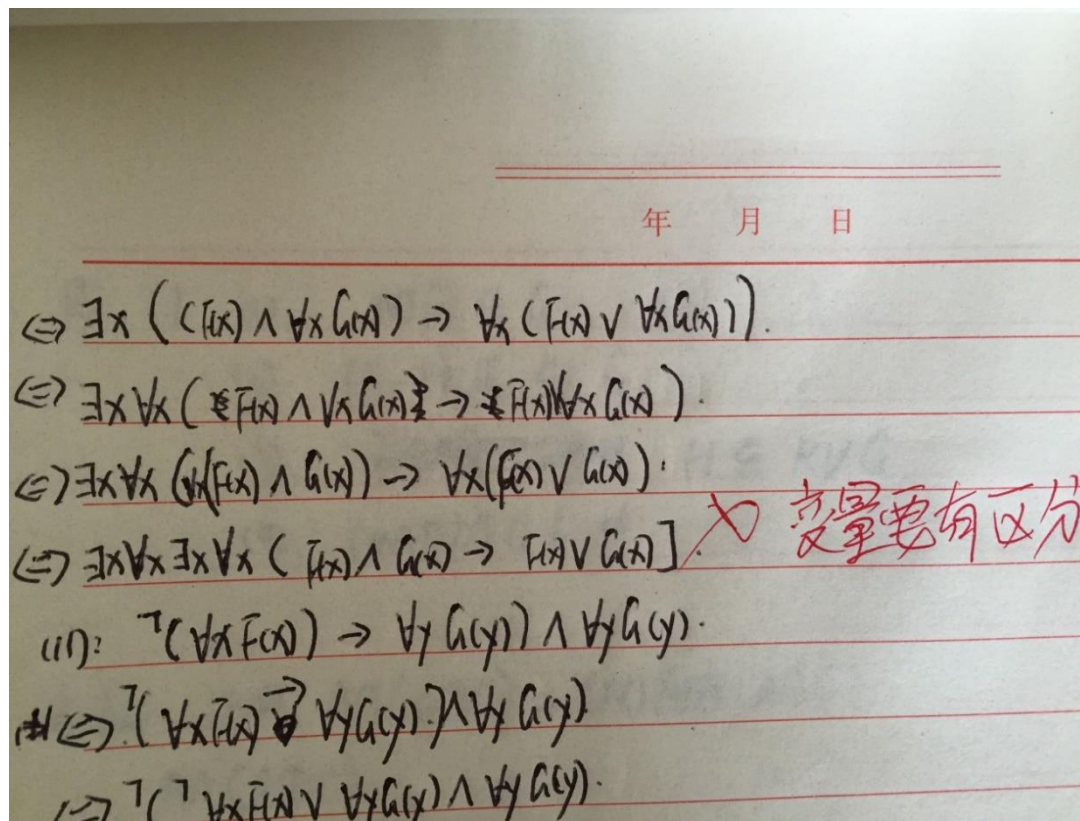 年 月 日
⇔ ∃x ((F(x) ∧ ∀x G(x)) → ∀x (F(x) ∨ ∀x G(x))).
⇔ ∃x ∀x ( F(x) ∧ ∀x G(x) → F(x) ∨ ∀x G(x) ).
⇔ ∃x ∀x (∀x(F(x) ∧ G(x)) → ∀x(F(x) ∨ G(x)).
⇔ ∃x∀x∃x∀x ( F(x) ∧ G(x) → F(x) ∨ G(x) ]. 变量要有区分
(11): ¬(∀x F(x)) → ∀y G(y)) ∧ ∀y G(y).
⇔ ¬( ∀x F(x) → ∀y G(y) ) ∧ ∀y G(y)
⇔ ¬( ¬ ∀x F(x) ∨ ∀y G(y) ∧ ∀y G(y).